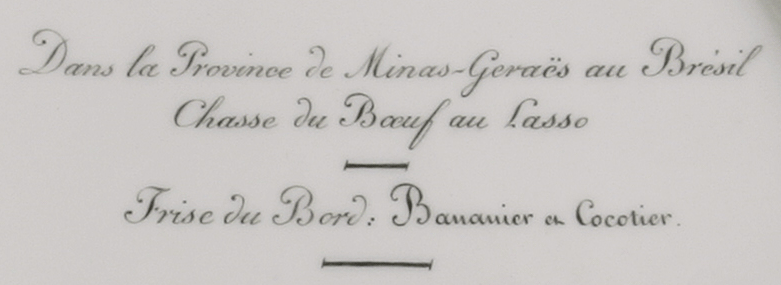 Dans la Province de Minas-Geraës au Brésil
Chasse du Bœuf au Lasso
Frise du Bord: Bananier et Cocotier.